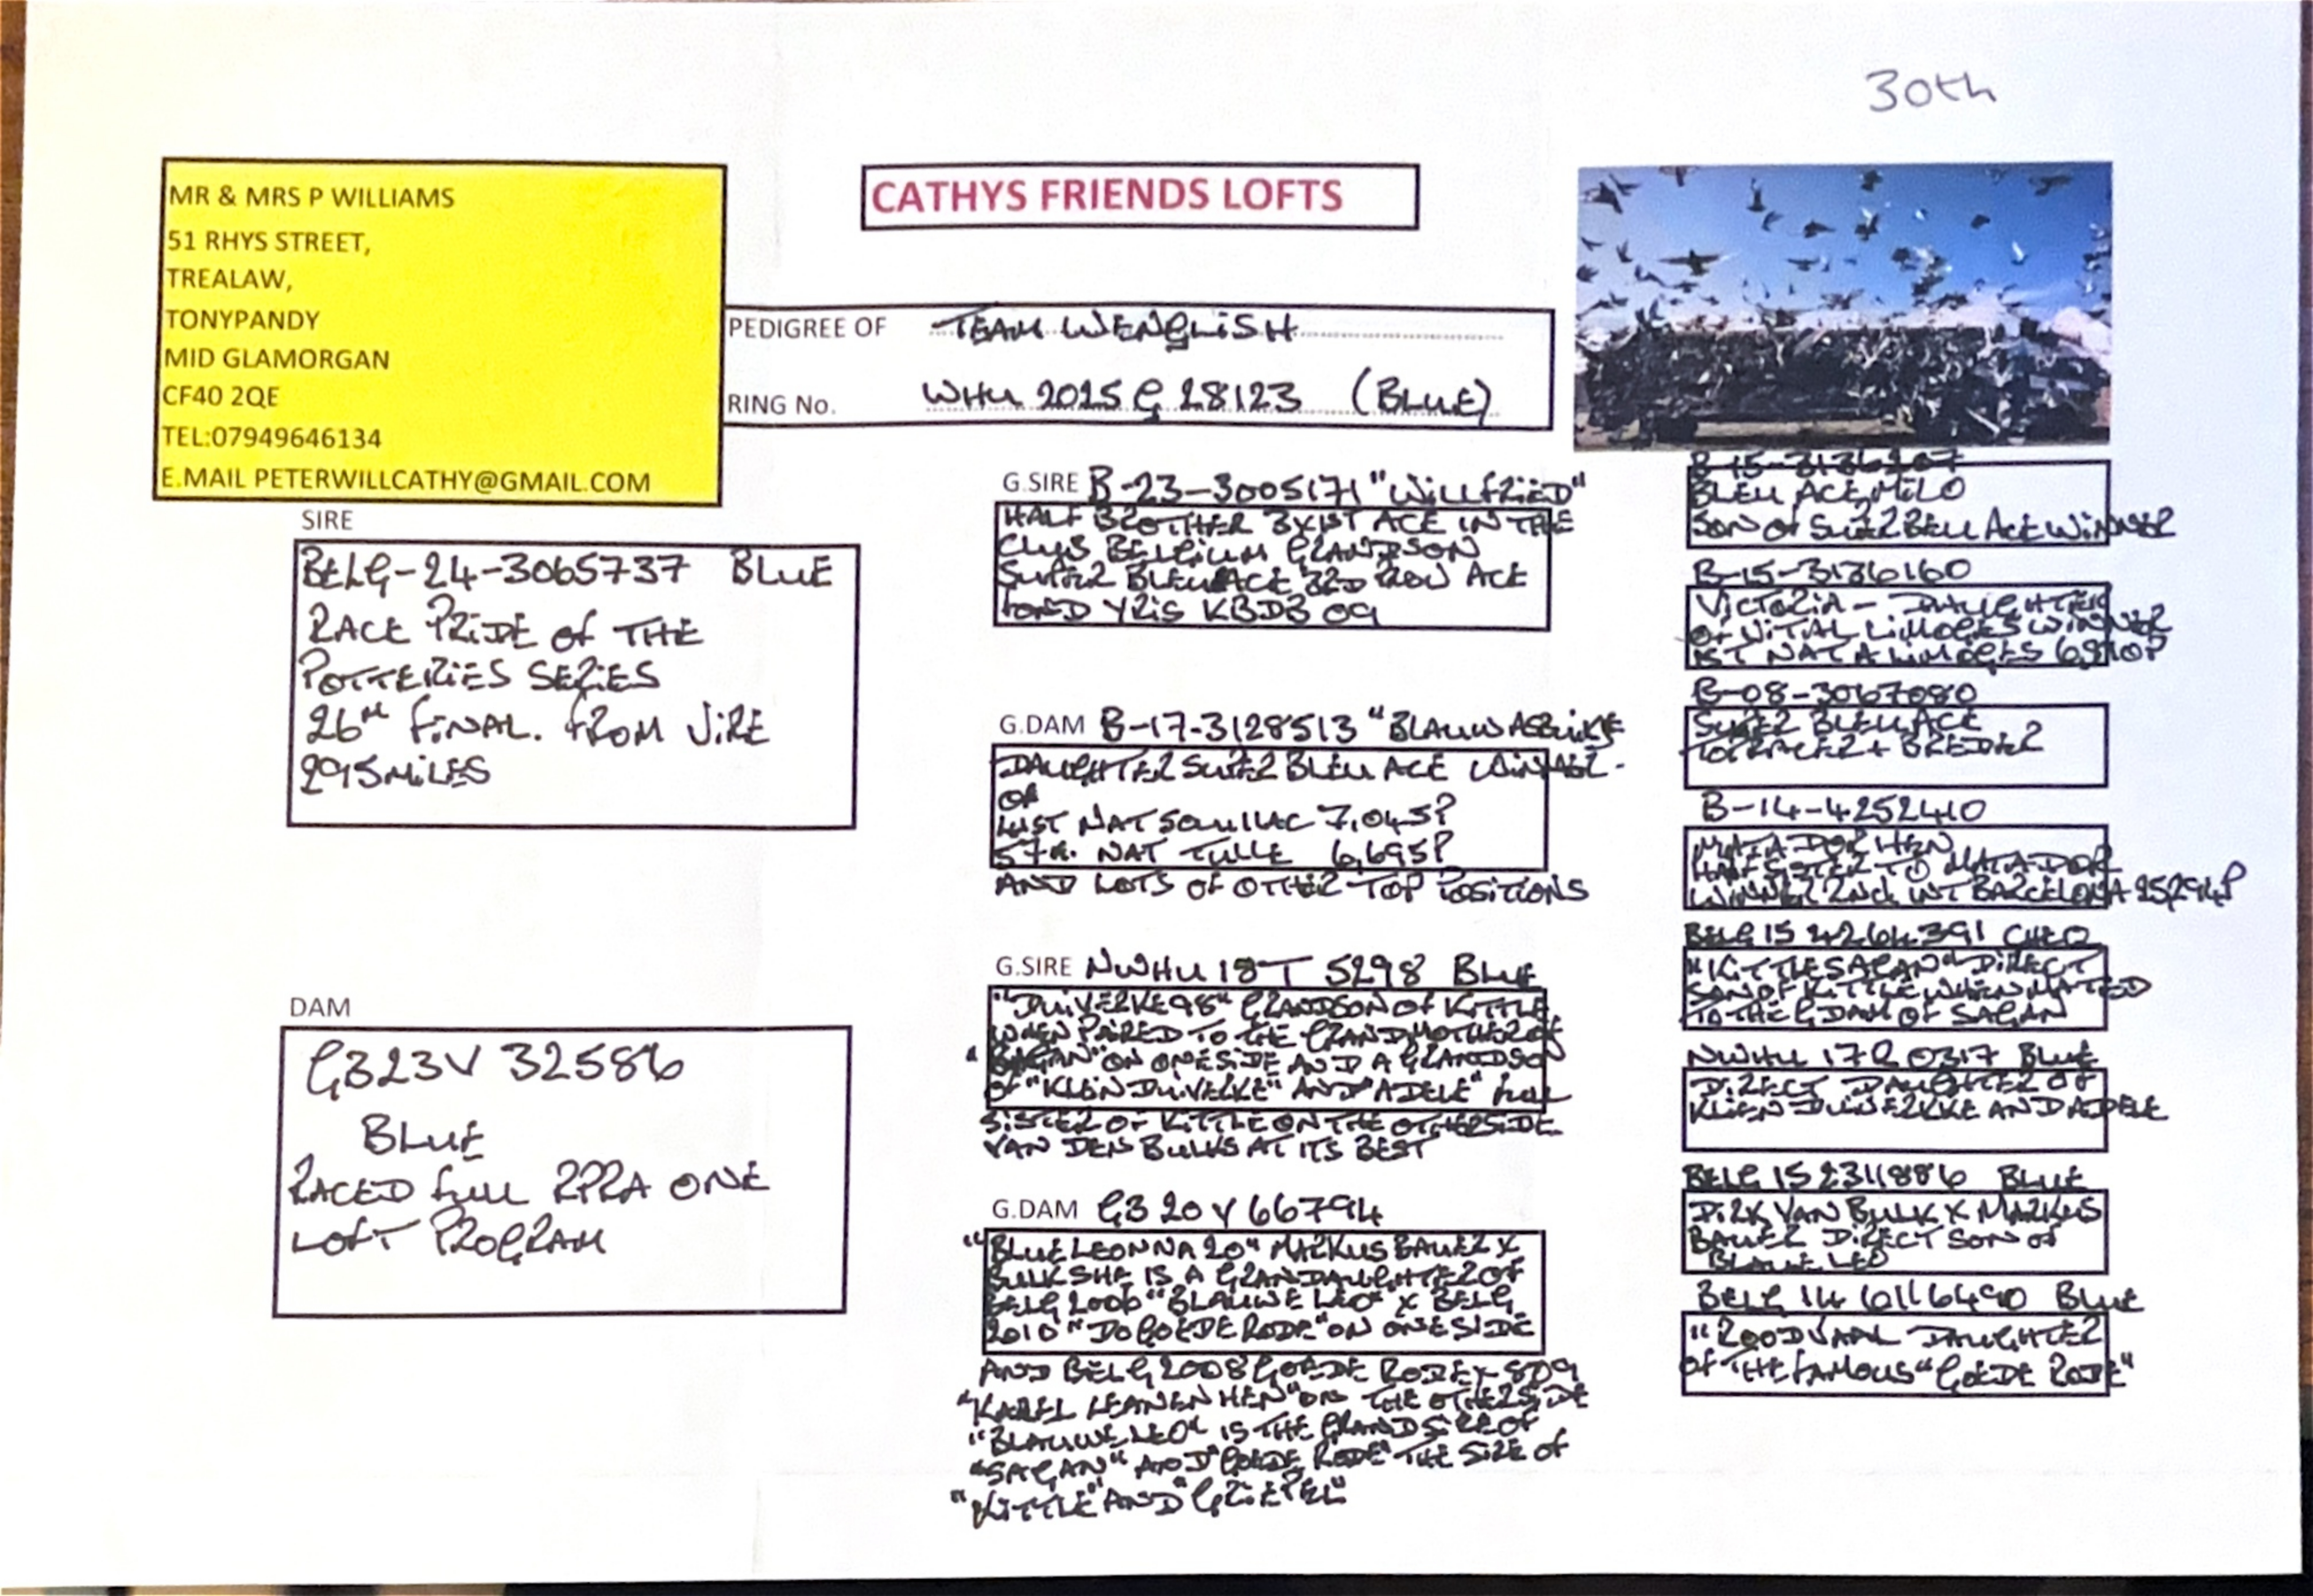 30th
MR & MRS P WILLIAMS
51 RHYS STREET,
TREALAW,
TONYPANDY
MID GLAMORGAN
CF40 2QE
TEL:07949646134
E.MAIL PETERWILLCATHY@GMAIL.COM
CATHYS FRIENDS LOFTS
PEDIGREE OF TEAM WENGLISH
RING No. WHU 2025 G 28123 (BLUE)
SIRE
BELG-24-3065737 BLUE
RACE PRIDE OF THE
POTTERIES SERIES
26TH FINAL. FROM VIRE
295 MILES
DAM
GB23V 32586
BLUE
RACED FULL RPRA ONE
LOFT PROGRAM
G.SIRE B-23-3005171 "WILLFRIED"
HALF BROTHER 3X1ST ACE IN THE
CLUB BELGIUM GRANDSON
SUPER BLEU ACE 32D ACE
YRIS KBDB 09
G.DAM B-17-3128513 "BLAUW
DAUGHTER SUPER BLEU ACE WINNER
OF
NAT SOUILLAC 7,045P
57TH. NAT TULLE 6,695P
AND LOTS OF OTHER TOP POSITIONS
G.SIRE NWHU 18T 5298 BLUE
"DUIVERKE 98" GRANDSON OF KITTLE
WHEN PAIRED TO THE GRANDMOTHER OF
"SAGAN" ON ONE SIDE AND A GRANDSON
OF "KLEIN DUIVELKE" AND "ADELE" FULL
SISTER OF KITTLE ON THE OTHERSIDE
VAN DEN BULKS AT ITS BEST
G.DAM GB 20 V 66794
"BLUE LEONNA 20" MARKUS BAUER X
BULK SHE IS A GRANDAUGHTER OF
BELG 2006 "BLAUWE LEO" X BELG
2010 "DO GOEDE RODE" ON ONE SIDE
AND BELG 2008 GOEDE RODE X 809
"KAREL LEANEN HEN" ON THE OTHERSIDE
"BLAUWE LEO" IS THE GRANDSIRE OF
"SAGAN" AND "GOEDE RODE" THE SIRE OF
"KITTLE" AND "GRIEPEL"
B-15-3136207
BLEU ACE MILO
SON OF SUPER BELU ACE WINNER
B-15-3136160
VICTORIA - DAUGHTER
OF VITAL LIMOGES WINNER
1ST NAT A LIMOGES
B-08-3067080
SUPER BLEU ACE
TOP RACER + BREDER
B-14-4252410
MATADOR HEN
HALF SISTER TO MATADOR
WINNER 2ND. INT BARCELONA 25,294P
BELG 15 4264391 CHEQ
"KITTLE SAGAN" DIRECT
SON OF KITTLE WHEN MATED
TO THE GDAM OF SAGAN
NWHU 17R 0317 BLUE
DIRECT DAUGHTER OF
KLIEN DUIVERKKE AND ADELE
BELG 15 2311886 BLUE
DIRK VAN BULK X MARKUS
BAUER DIRECT SON OF
BLAUE LEO
BELG 14 6116490 BLUE
"ROODVAAL DAUGHTER
OF THE FAMOUS "GOEDE RODE"